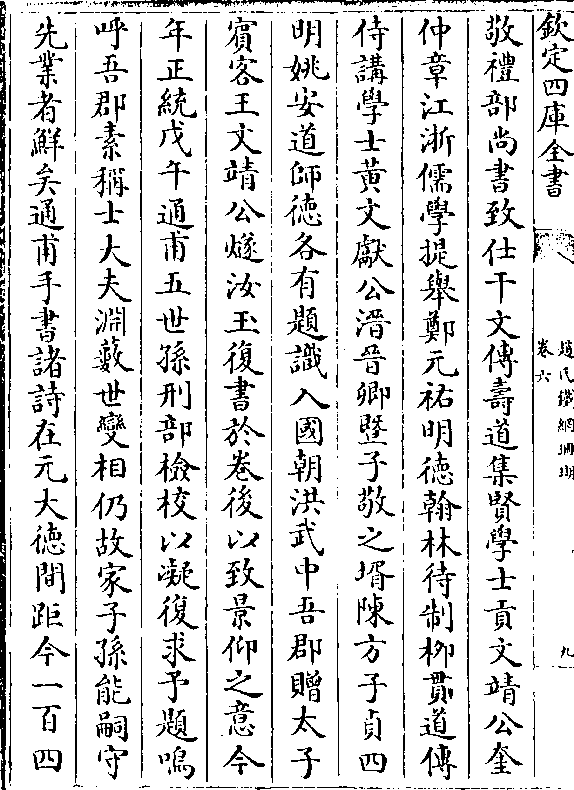 欽定四庫全書
趙氏鐵網珊瑚
卷六
九
敬禮部尚書致仕干文傳壽道集賢學士貢文靖公奎
仲章江浙儒學提舉鄭元祐明德翰林待制柳貫道傳
侍講學士黃文獻公溍晉卿暨子敬之壻陳方子貞四
明姚安道師德各有題識入國朝洪武中吾郡贈太子
賓客王文靖公燧汝玉復書於卷後以致景仰之意今
年正統戊午通甫五世孫刑部檢校以凝復求予題嗚
呼吾郡素稱士大夫淵藪世變相仍故家子孫能嗣守
先業者鮮矣通甫手書諸詩在元大德間距今一百四